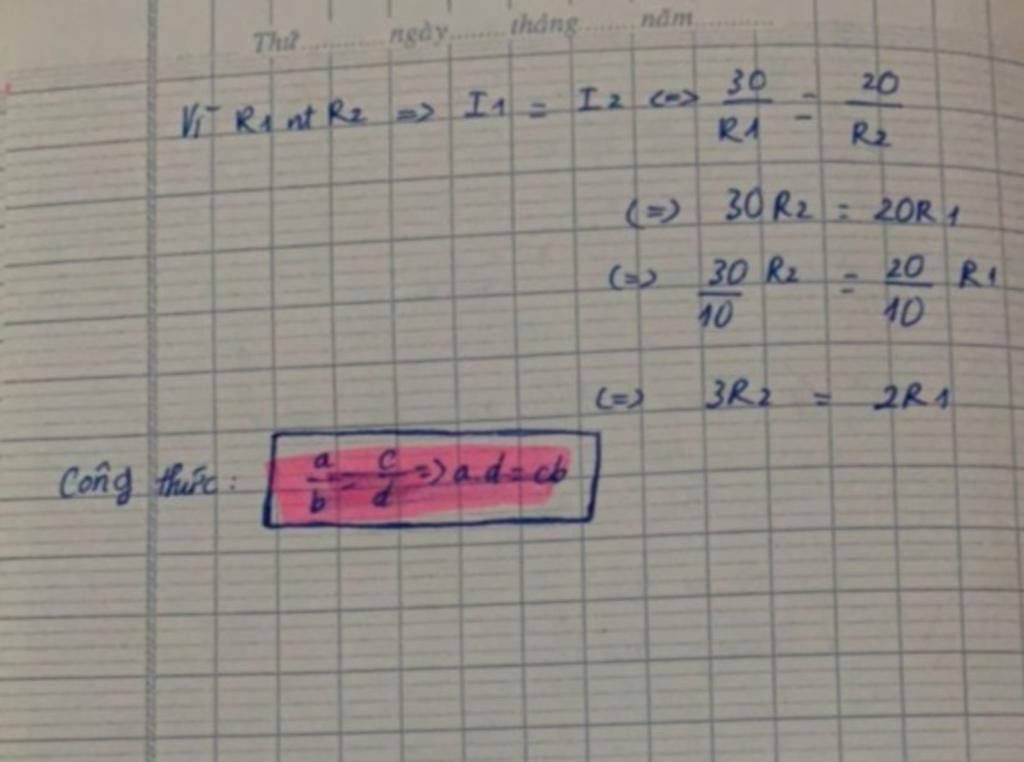 Thứ.......... ngày........tháng.......năm............
Vì R1 nt R2 => I1 = I2 <=> 30/R1 = 20/R2
(=) 30R2 = 20R1
(=> 30/10 R2 = 20/10 R1
(=) 3R2 = 2R1
Công thức: a/b = c/d => a.d = cb